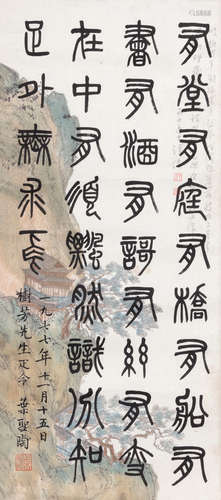 有堂有庭有橋有船有
書有酒有謌有絃有叟
在中有須飄然識分知
足外無求焉
一九七七年十一月十五日
樹芳先生疋令 葉聖陶